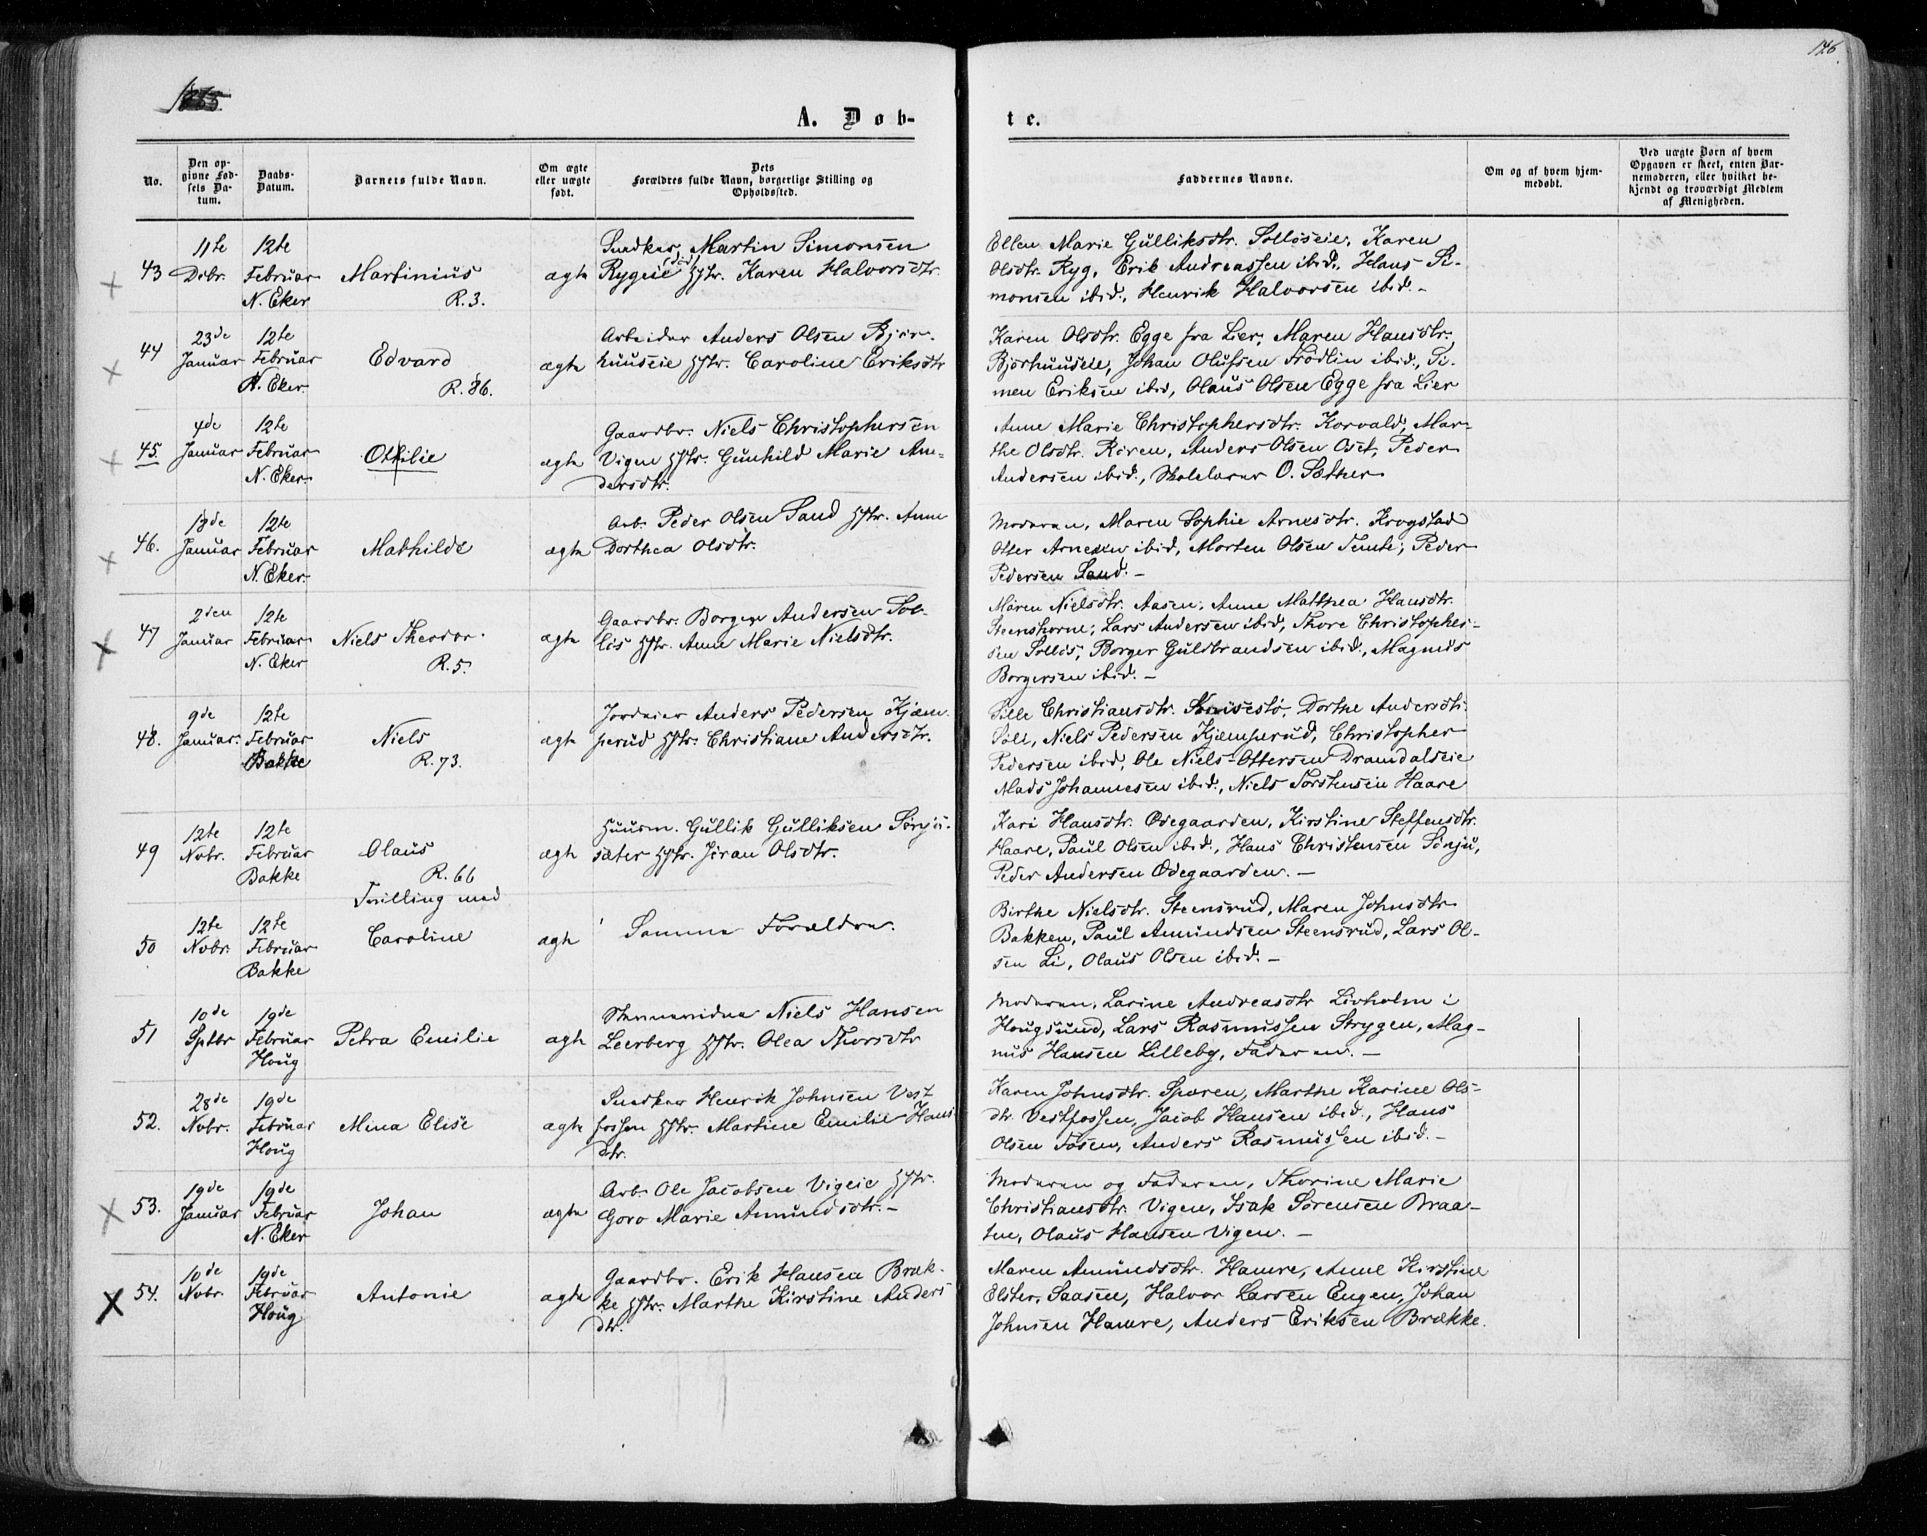 126.
1865.
A. Døb-
te.
No.
Den op-
givne Fød-
sels Da-
tum.
Daabs-
Datum.
Barnets fulde Navn.
Om ægte
eller uægte
født.
Dets
Forældres fulde Navn, borgerlige Stilling og
Opholdssted.
Faddernes Navne.
Om og af hvem hjem-
medøbt.
Ved uægte Børn af hvem
Opgaven er skeet, enten Bar-
nemoderen, eller hvilket be-
kjendt og troværdigt Medlem
af Menigheden.
43
11te
Dcbr.
12te
Februar
N. Eker
Martinius
R. 3.
ægte
Snedker Martin Simonsen
Rygeie Hstr. Karen Halvorsdtr.
Ellen Marie Gulliksdtr. Solløseie, Karen
Olsdtr. Ryg, Erik Andreassen ibid., Hans Si-
monsen ibid., Henrik Halvorsen ibid. -
44
23de
Januar
12te
Februar
N. Eker
Edvard
R. 86.
ægte
Arbeider Anders Olsen Bjør-
huuseie Hstr. Caroline Eriksdtr
Karen Olsdtr. Egge fra Lier, Maren Hansdtr.
Bjørhuuseie, Johan Olufsen Frödlin ibid., Si-
men Eriksen ibid, Olaus Olsen Egge fra Lier
45.
4de
Januar
12te
Februar
N. Eker
Ottilie
ægte
Gaardbr. Niels Christophersen
Vigen Hstr. Gunhild Marie An-
dersdtr.
Anne Marie Christophersdtr. Korvald, Mar-
the Olsdtr. Røren, Anders Olsen Oset, Peder
Andersen ibid., Skolelærer O. Sæther
46.
18de
Januar
12te
Februar
N. Eker
Mathilde
ægte
Arb. Peder Olsen Sand Hstr. Anne
Dorthea Olsdtr.
Moderen, Maren Sophie Arnesdtr. Krogstad
Otter Arnesen ibid, Morten Olsen Temte, Peder
Pedersen Sand. -
47
2den
Januar
12te
Februar
N. Eker
Niels Theodor
R. 5.
ægte
Gaardbr. Borger Andersen Sol-
løs Hstr. Anne Marie Nielsdtr.
Maren Nielsdtr. Aasen, Anne Mathea Hansdtr.
Steenshorne, Lars Andersen ibid, Thore Christopher-
sen Solløs, Borger Guldbrandsen ibid., Magnus
Borgersen ibid. -
48.
9de
Januar.
12te
Februar
Bakke
Niels
R. 73.
ægte
Jordeier Anders Pedersen Kjæm-
perud Hstr. Christiane Andersdtr.
Sille Christiansdtr. Dorthe Andersdtr.
Niels Pedersen Kjæmperud, Christopher
Pedersen ibid, Ole Niels Ottersen Dramdalseie
Mads Johannesen ibid., Niels Torstensen Haare
49
12te
Novbr.
12te
Februar
Bakke
Olaus
R. 66
Tvilling med
ægte
Huusm. Gullik Gulliksen Sønju-
sæter Hstr. Jøran Olsdtr.
Kari Hansdtr. Ødegaarden, Kirstine Steffensdtr.
Haare, Paul Olsen ibid., Hans Christensen Sønju,
Peder Andersen Ødegaarden. -
50
12te
Novbr.
12te
Februar
Bakke
Caroline
ægte
Samme Forældre.
Birthe Nielsdtr. Steensrud, Maren Johnsdtr
Bakken, Paul Amundsen Steensrud, Lars Ol-
sen Li, Olaus Olsen ibid. -
51
10de
Sptbr
19de
Februar
Houg
Petra Emilie
ægte
Niels Hansen
Leerberg Hstr. Olea Thorsdtr
Moderen, Larine Andreasdtr Livholm i
Hougsund, Lars Rasmussen Strygen, Mag-
nus Hansen Lilleby, Faderen. -
52.
28de
Novbr.
19de
Februar
Houg
Mina Elise
ægte
Snedker Henrik Johnsen Vest
fossen Hstr. Martine Emilie Hans
dtr.
Karen Johnsdtr. Sporen, Marthe Karine Ols-
dtr. Vestfossen, Jacob Hansen ibid., Hans
Olsen Fosen, Anders Rasmussen ibid. -
53.
19de
Januar
19de
Februar
N. Eker
Johan
ægte
Arb. Ole Jacobsen Vigeie Hstr.
Goro Marie Amundsdtr. -
Moderen og Faderen, Thorine Marie
Christiansdtr. Vigen, Isak Sørensen Braa-
ten, Olaus Hansen Vigen. -
54.
10de
Novbr.
19de
Februar
Houg
Antonie
ægte
Gaardbr. Erik Hansen Bræk-
ke Hstr. Marthe Kirstine Anders
dtr.
Maren Amundsdtr. Hamre, Anne Kirstine
Elster, Saasen, Halvor Larsen Engen, Johan
Johnsen Hamre, Anders Eriksen Brække.